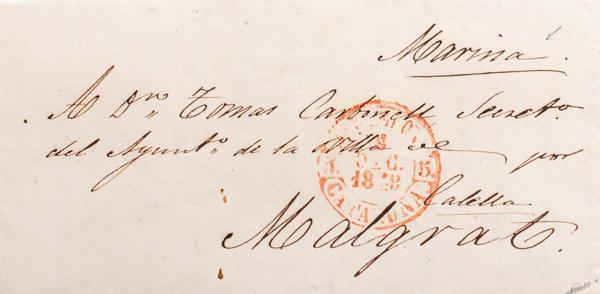 Marina.
A Dn. Tomas Carbonell Secreto.
del Ayunto. de la Villa de por
Calella
Malgrat.
18
5.
CATALUÑA